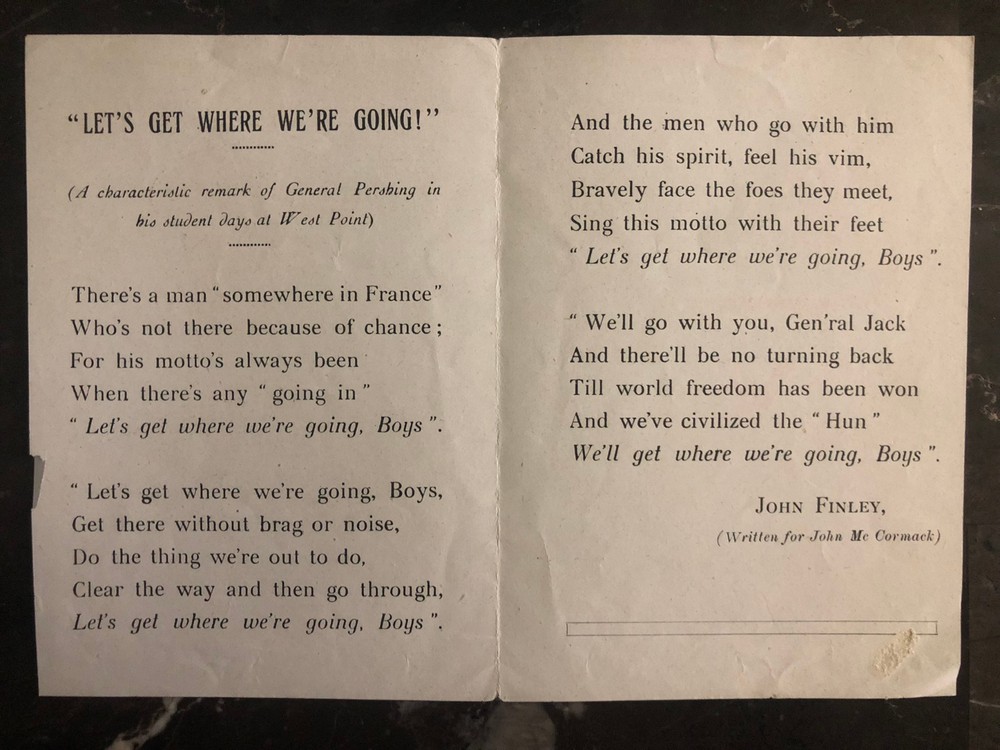 “LET’S GET WHERE WE’RE GOING!”
(A characteristic remark of General Pershing in
his student days at West Point)
There’s a man “somewhere in France”
Who’s not there because of chance;
For his motto’s always been
When there’s any “going in”
“Let’s get where we’re going, Boys”.
“Let’s get where we’re going, Boys,
Get there without brag or noise,
Do the thing we’re out to do,
Clear the way and then go through,
Let’s get where we’re going, Boys”.
And the men who go with him
Catch his spirit, feel his vim,
Bravely face the foes they meet,
Sing this motto with their feet
“Let’s get where we’re going, Boys”.
“We’ll go with you, Gen’ral Jack
And there’ll be no turning back
Till world freedom has been won
And we’ve civilized the “Hun”
We’ll get where we’re going, Boys”.
JOHN FINLEY,
(Written for John Mc Cormack)